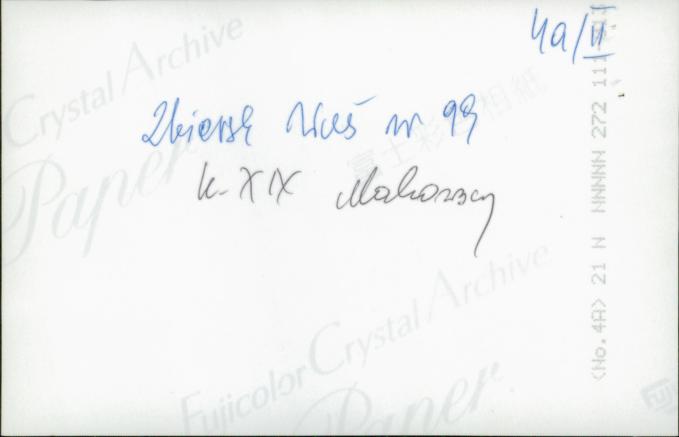 4a/II
Zbiersk Wieś nr 99
k-XIX Makowscy
Fujicolor Crystal Archive
Paper
Crystal Archive
Paper
富士彩色相紙
<No.4A> 21 N NNNNN 272 111